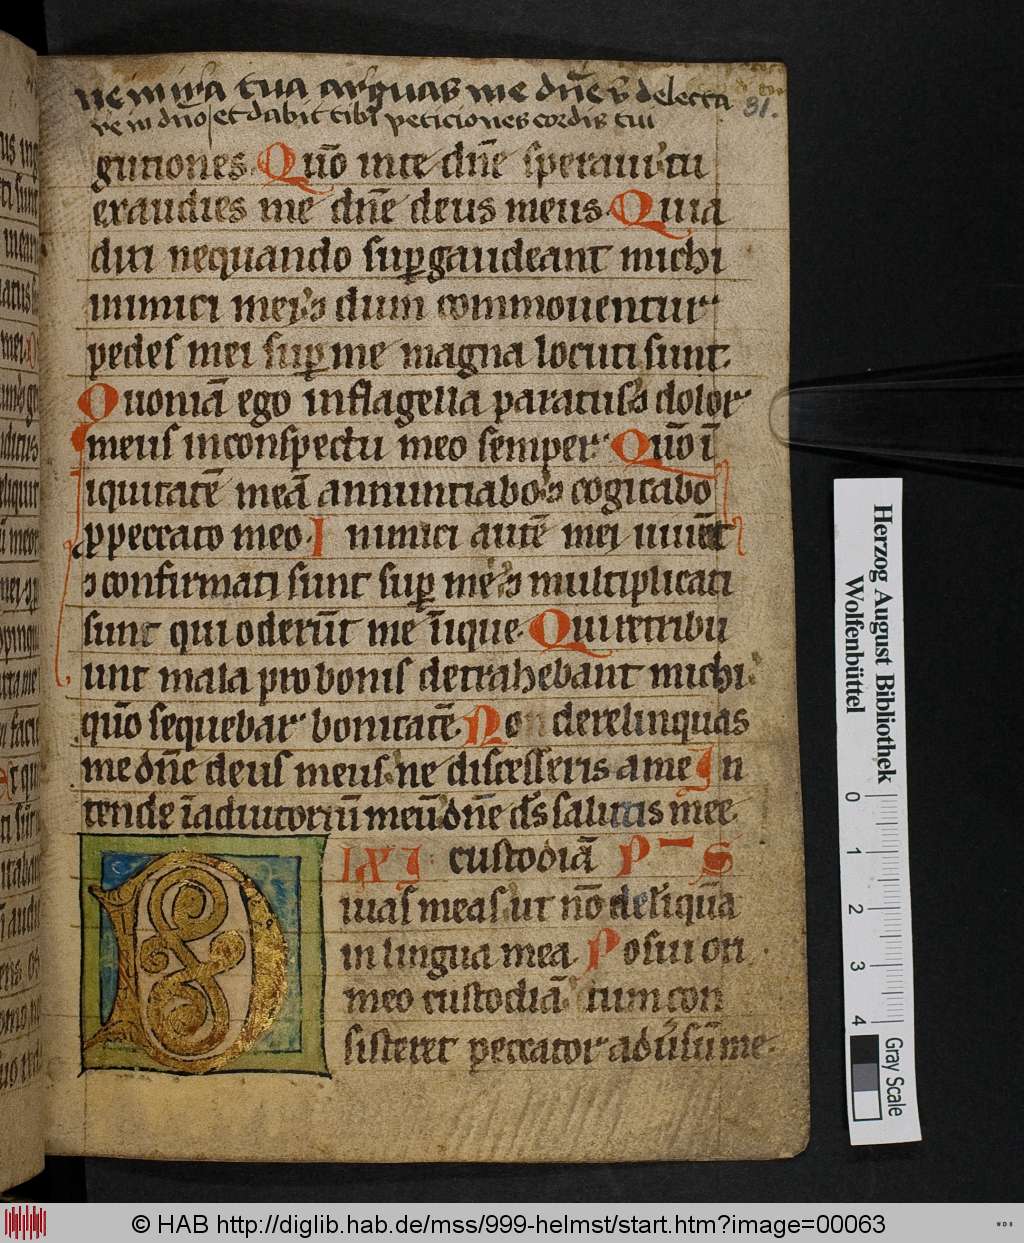 ne in ira tua arguas me dn̄e v̄ delecta
re in dn̄o et dabit tibi peticiones cordis tui
31.
gutiones. Qūo in te dn̄e speraui tu
exaudies me dn̄e deus meus. Quia
dixi nequando sup̱gaudeant michi
inimici mei ⁊ dum commouentur
pedes mei sup̱ me magna locuti sunt.
Quoniā ego in flagella paratus ⁊ dolor
meus in conspectu meo semper. Qūo ī
iquitatē meā annuntiabo ⁊ cogitabo
ꝓ peccato meo. Inimici autē mei uiuēt
⁊ confirmati sunt sup̱ me ⁊ multiplicati
sunt qui oderūt me īique. Qui retribu
unt mala pro bonis detrahebant michi
qūo sequebar bonitatē. Non derelinquas
me dn̄e deus meus ne discesseris a me In
tende ī adiutoriū meū dn̄e d̄s salutis mee.
DIXI custodiā PS
uias meas ut nō deliquā
in lingua mea. Posui ori
meo custodiā cum con
sisteret peccator adusū me.
Herzog August Bibliothek
Wolfenbüttel
0 1 2 3 4
Gray Scale
© HAB http://diglib.hab.de/mss/999-helmst/start.htm?image=00063
WDB